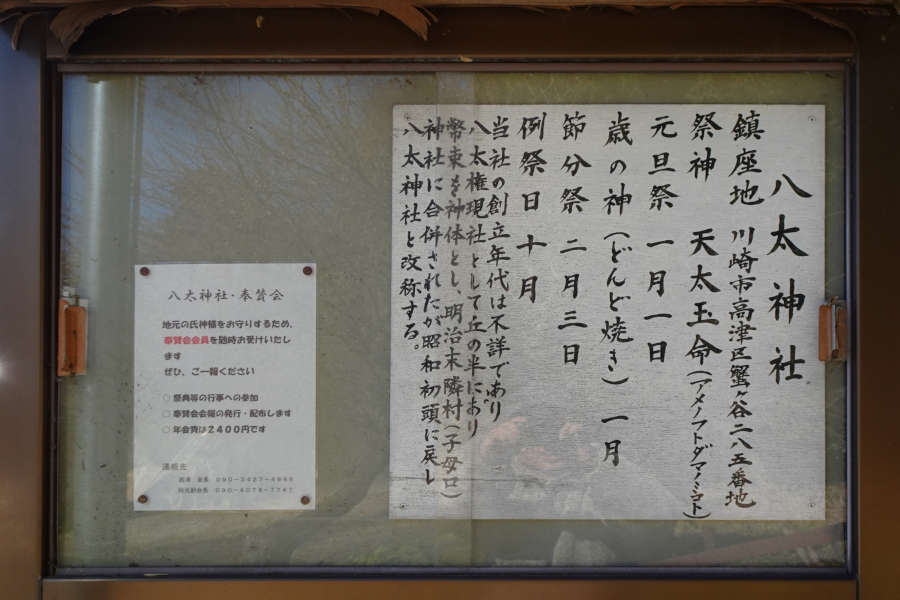 八太神社
鎮座地　川崎市高津区蟹ヶ谷二八五番地
祭神　天太玉命(アメノフトダマノミコト)
元旦祭　一月一日
歳の神(どんど焼き)　一月
節分祭　二月三日
例祭日　十月
当社の創立年代は不詳であり
八太権現社として丘の半にあり
幣束を神体とし、明治末隣村(子母口)
神社に合併されたが昭和初頭に戻し
八太神社と改称する。
八太神社・奉賛会
地元の氏神様をお守りするため、
奉賛会会員を随時お受けいたし
ます
ぜひ、ご一報ください
○祭典等の行事への参加
○奉賛会会報の発行・配布します
○年会費は2400円です
連絡先